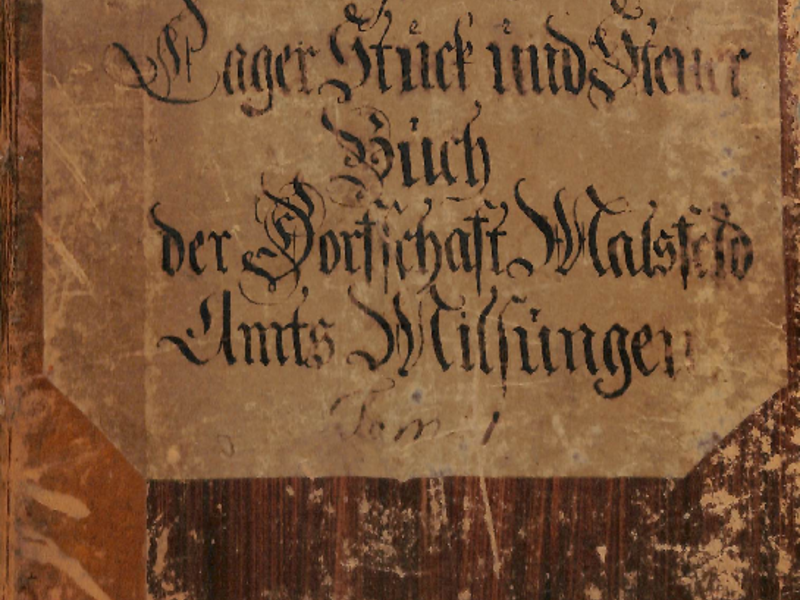 Lager Stück und Steuer
Buch
der Dorfschafft Malsfeld
Amts Milsungen
Tom. 1